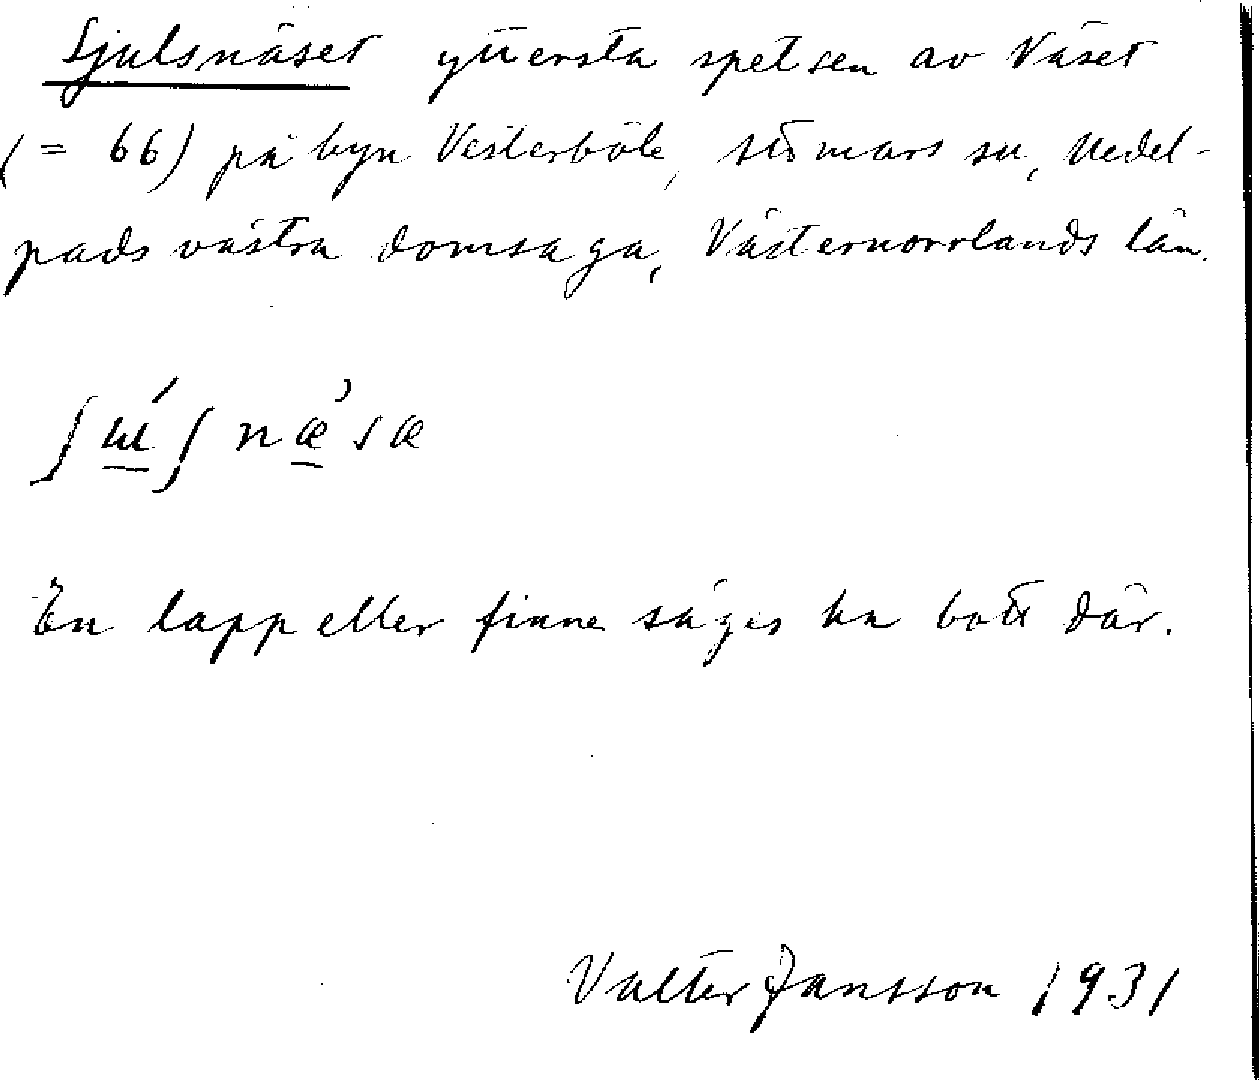 Sjulsnäset yttersta spetsen av Näset
(= 66) på byn Västerböle, Stömars sn, Medel-
pads västra domsaga, Västernorrlands län.
ʃɯ́ʃnæ̀sæ
En lapp eller finne säges ha bott där.
Valter Jansson 1931